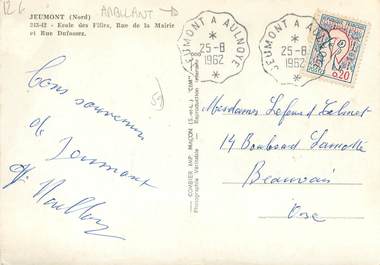 126 AMBULANT
JEUMONT (Nord)
242-12 - Ecole des Filles, Rue de la Mairie
et Rue Dufossez.
JEUMONT A AULNOYE
25-8
1962
JEUMONT A AULNOYE
25-8
1962
0,20
COMBIER IMP. MACON (S.-et-L.) "CIM"
Photographie Véritable - Reproduction interdite
Bons souvenirs
de Jeumont
Mesdames Lefeure et
14 Boulevard Lamotte
Beauvais
Oise